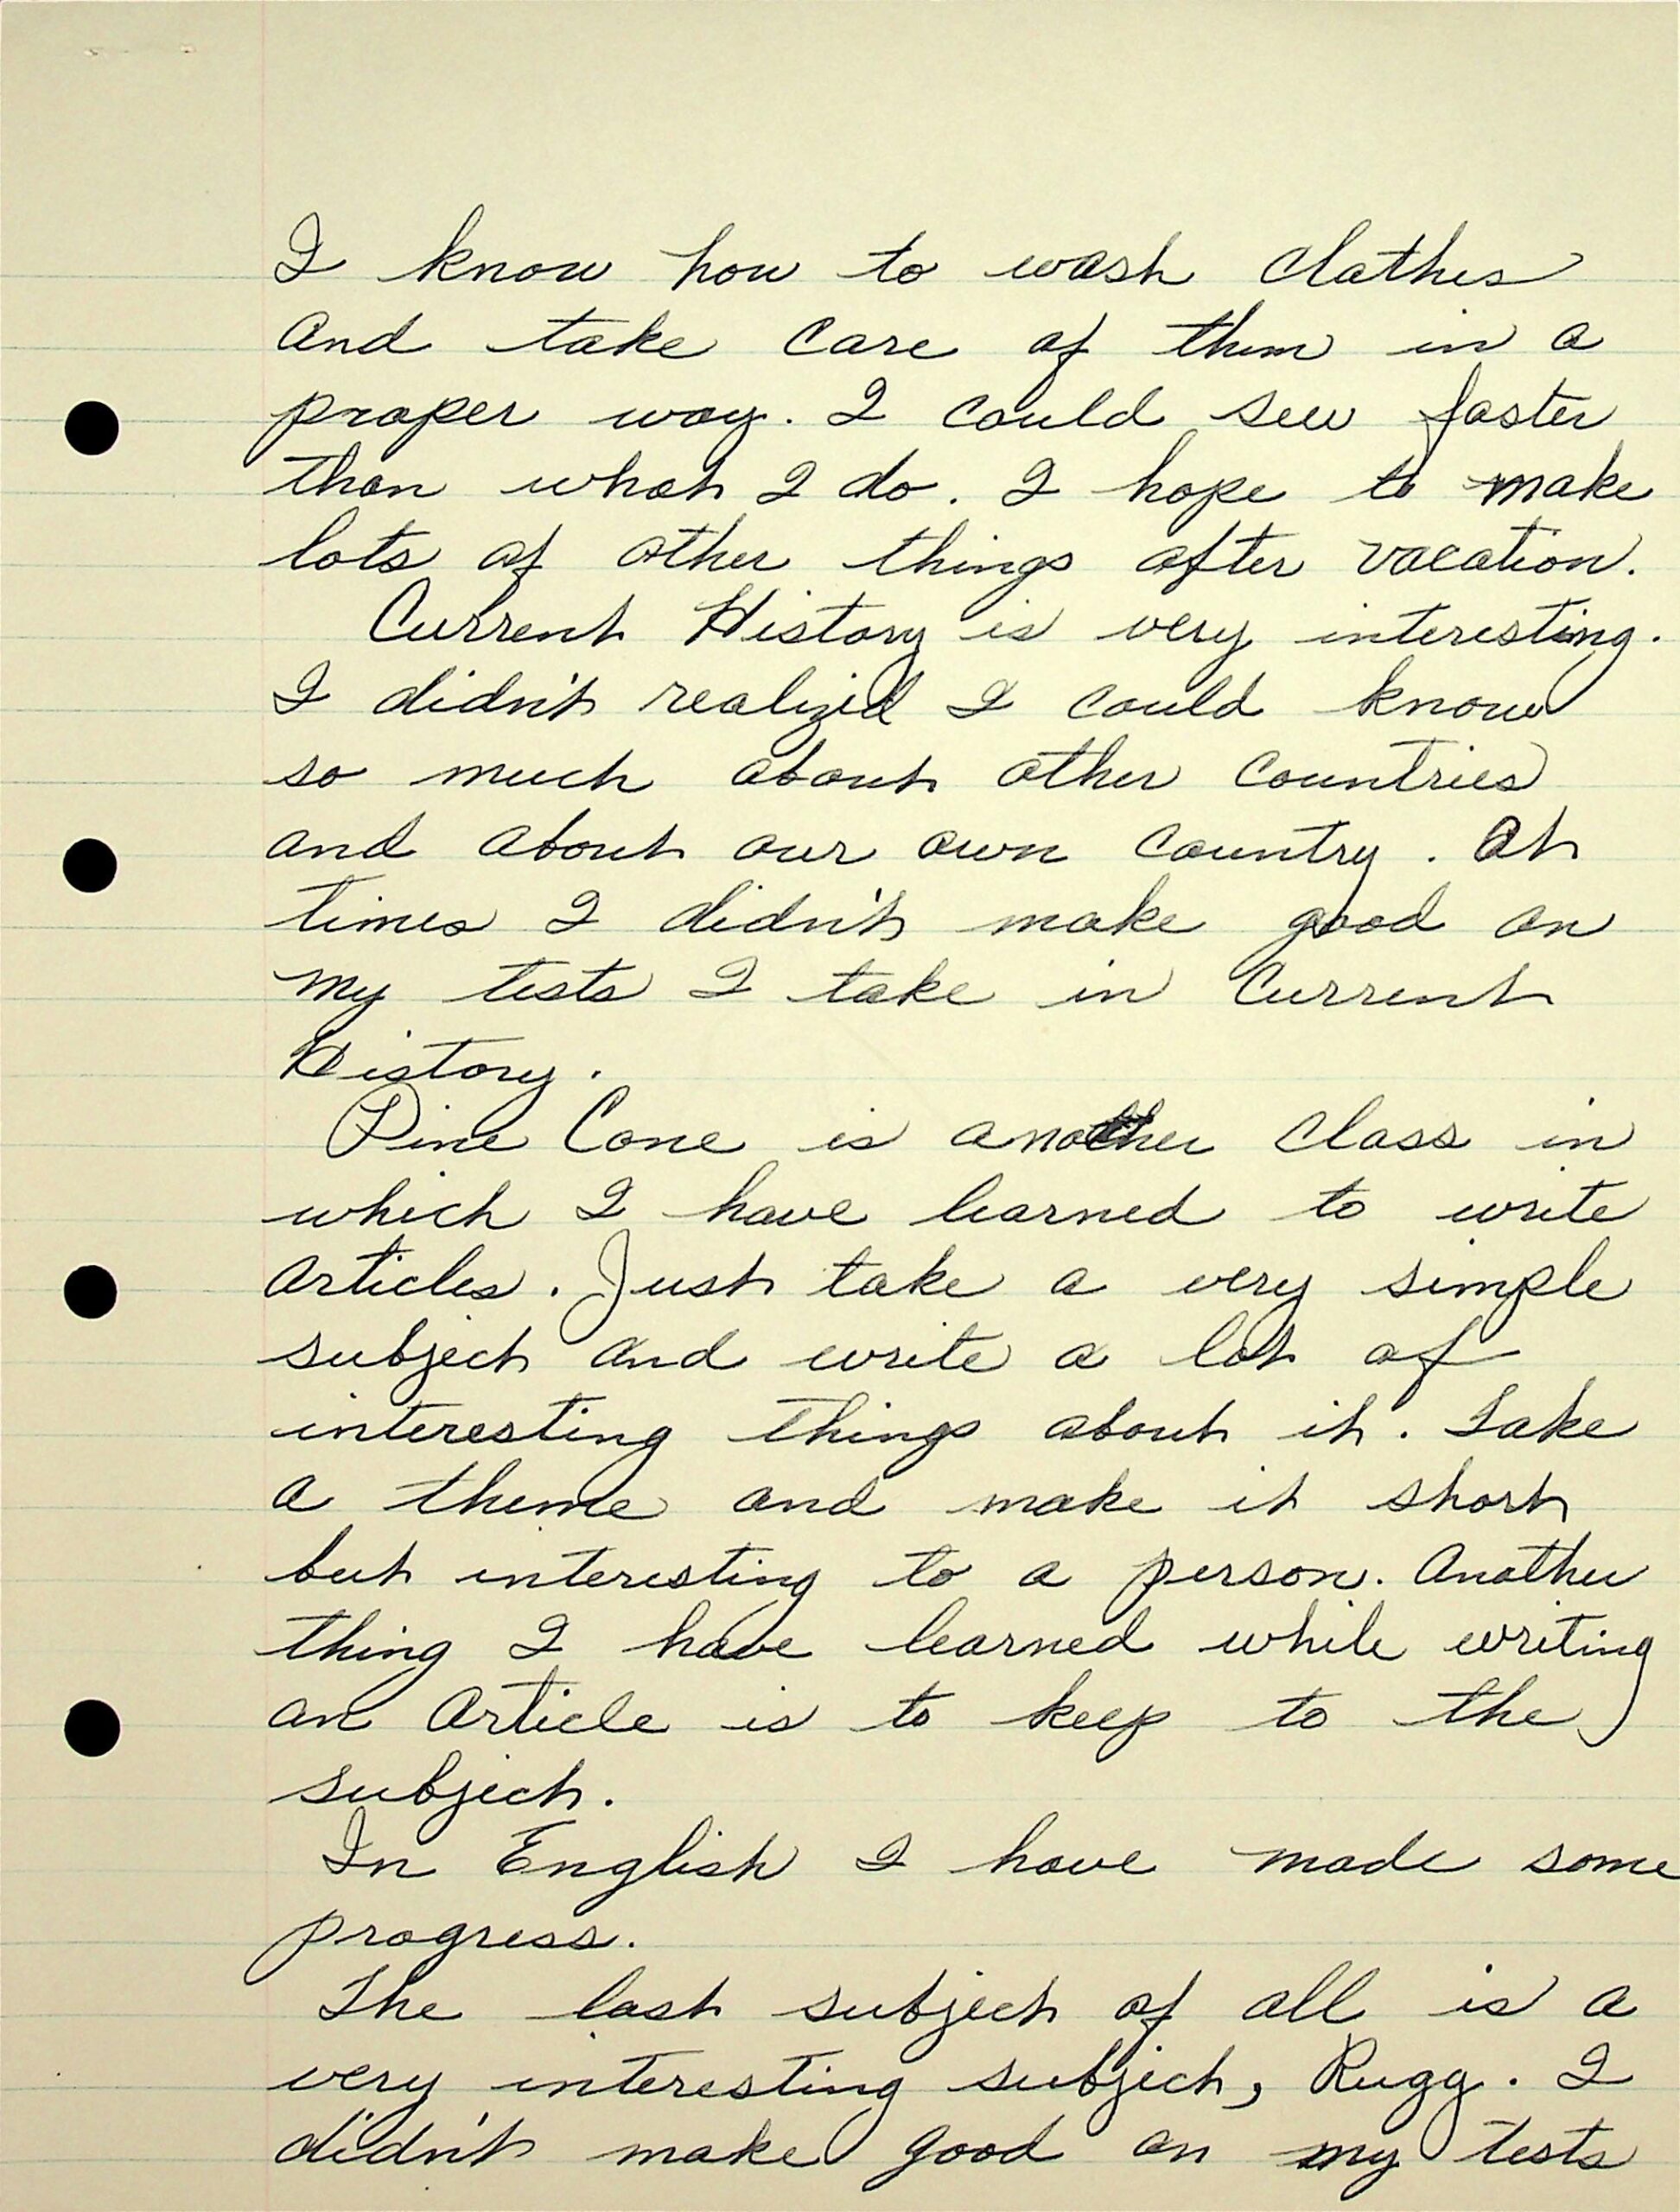 I know how to wash clothes
and take care of them in a
proper way. I could sew faster
than what I do. I hope to make
lots of other things after vacation.
Current History is very interesting.
I didn't realized I could know
so much about other countries
and about our own country. At
times I didn't make good on
my tests I take in Current
History.
Pine Cone is another class in
which I have learned to write
articles. Just take a very simple
subject and write a lot of
interesting things about it. Take
a theme and make it short
but interesting to a person. Another
thing I have learned while writing
an article is to keep to the
subject.
In English I have made some
progress.
The last subject of all is a
very interesting subject, Rugg. I
didn't make good on my tests